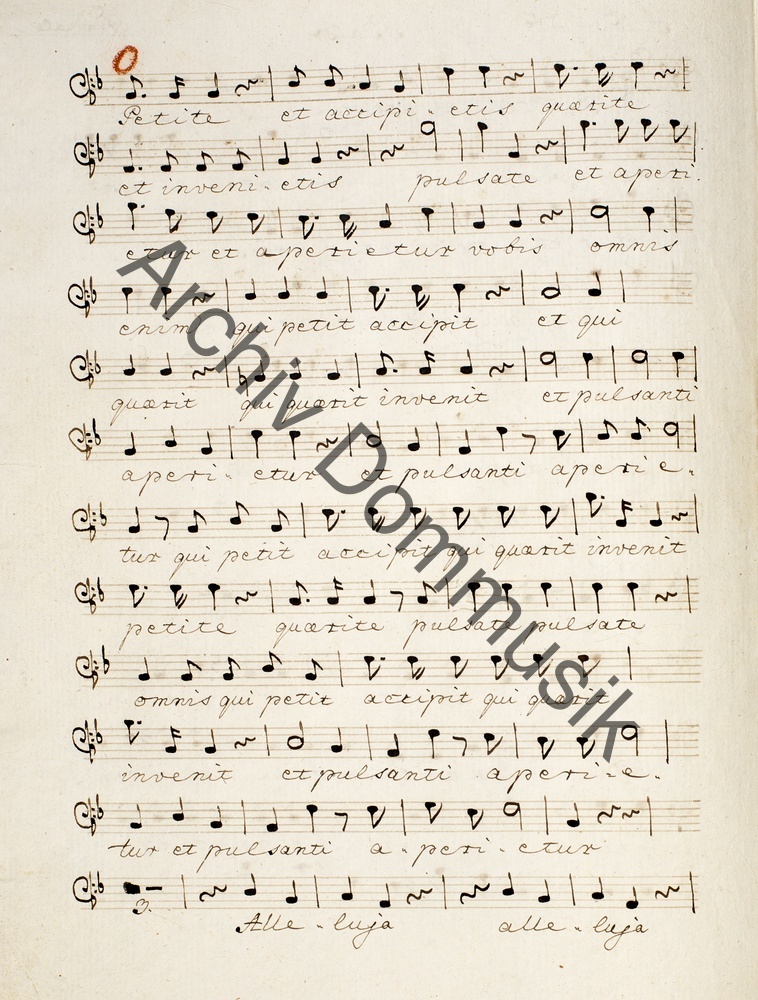 Petite et accipi - etis quærite
et inveni - etis pulsate et aperi -
etur et aperietur vobis omnis
enim qui petit accipit et qui
quærit qui quærit invenit et pulsanti
aperi - etur et pulsanti aperi e -
tur qui petit accipit qui quærit invenit
petite quærite pulsate pulsate
omnis qui petit accipit qui quærit
invenit et pulsanti aperi - e -
tur et pulsanti a - peri - etur
3.
Alle - luja alle - luja
Archiv Dommusik